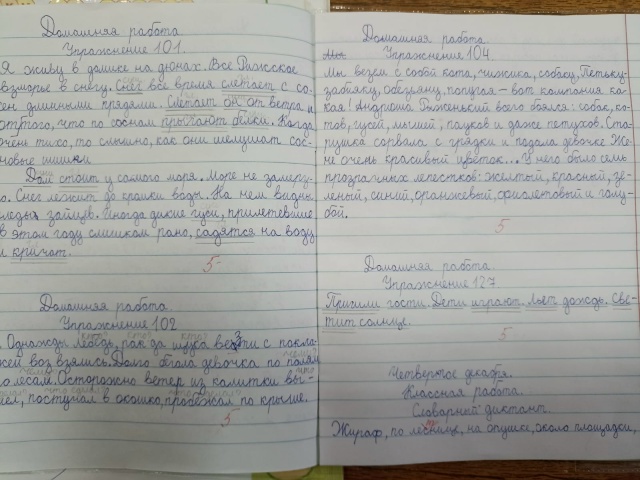 Домашняя работа
Упражнение 101.
Я живу в домике на дюнах. Все Рижское
взморье в снегу. Снег все время слетает с со-
сен длинными прядями. Слетает он от ветра и
оттого, что по соснам прыгают белки. Когда
очень тихо, то слышно, как они шелушат сос-
новые шишки
Дом стоит у самого моря. Море не замерз-
о. Снег лежит до кромки воды. На нем видны
леды зайцев. Иногда дикие гуси, прилетевшие
в этом году слишком рано, садятся на воду
и кричат.
5
Домашняя работа.
Упражнение 102
кто? кто? кто?
. Однажды лебедь, рак да щука везти с покла-
жей воз взялись. Долго бегала девочка по полям
о лесам. Осторожно ветер из калитки вы-
шел, постучал в окошко, пробежал по крыше.
5
Домашняя работа.
Упражнение 104.
Мы везем с собой кота, чижика, собаку, Петьку-
забияку, обезьяну, попугая – вот компания ка-
кая! Андрюша Рыженький всего боялся: собак, ко-
тов, гусей, мышей, пауков и даже петухов. Ста-
рушка сорвала с грядки и подала девочке Же-
не очень красивый цветок... У него было семь
прозрачных лепестков: желтый, красный, зе-
леный, синий, оранжевый, фиолетовый и голу-
бой.
5
Домашняя работа.
Упражнение 127.
Пришли гости. Дети играют. Льет дождь. Све-
тит солнце.
5
Четвертое декабря.
Классная работа.
Словарный диктант.
Жираф, по лестнице, на опушке, около площадки,